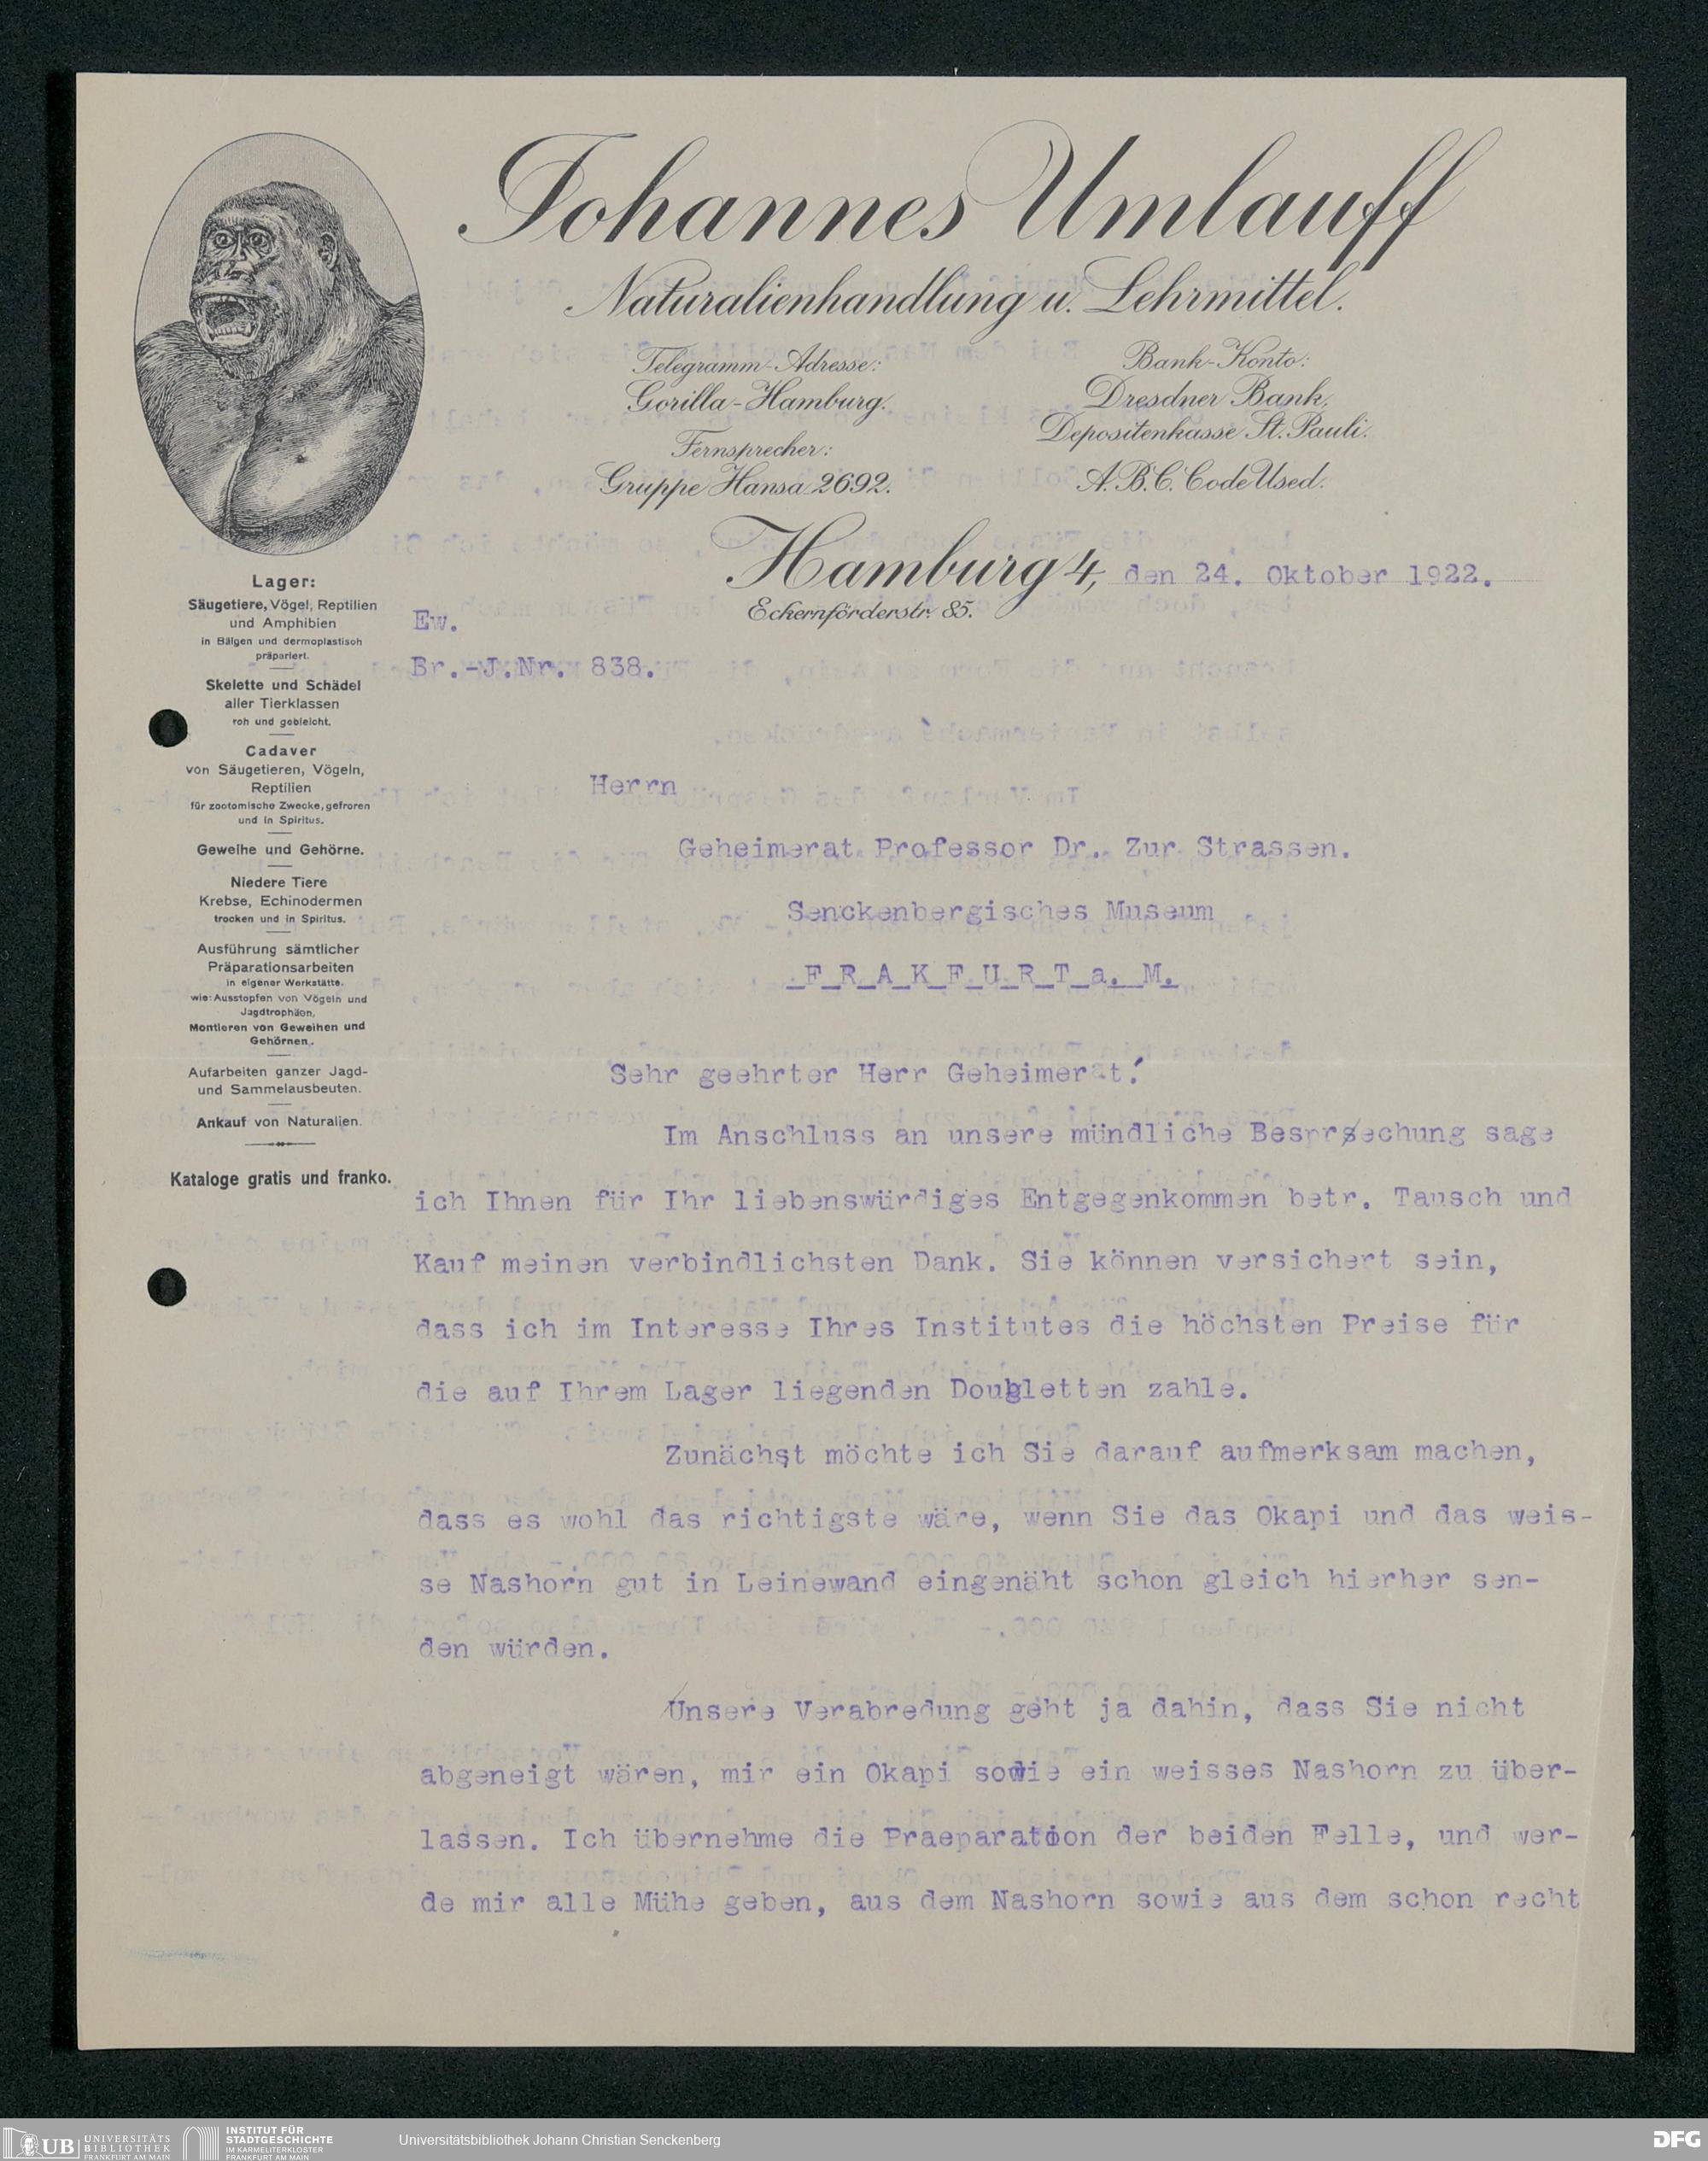 Johannes Umlauff
Naturalienhandlung u. Lehrmittel.
Telegramm-Adresse:
Gorilla-Hamburg.
Fernsprecher:
Gruppe Hansa 2692.
Bank-Konto:
Dresdner Bank,
Depositenkasse St. Pauli.
A.B.C. Code Used.
Hamburg 4, den 24. Oktober 1922.
Eckernförderstr. 85.
Lager:
Säugetiere, Vögel, Reptilien
und Amphibien
in Bälgen und dermoplastisch
präpariert.
Skelette und Schädel
aller Tierklassen
roh und gebleicht.
Cadaver
von Säugetieren, Vögeln,
Reptilien
für zootomische Zwecke, gefroren
und in Spiritus.
Geweihe und Gehörne.
Niedere Tiere
Krebse, Echinodermen
trocken und in Spiritus.
Ausführung sämtlicher
Präparationsarbeiten
in eigener Werkstätte.
wie: Ausstopfen von Vögeln und
Jagdtrophäen,
Montieren von Geweihen und
Gehörnen.
Aufarbeiten ganzer Jagd-
und Sammelausbeuten.
Ankauf von Naturalien.
Kataloge gratis und franko.
Ew.
Br.-J.Nr. 838.
Herrn
Geheimerat Professor Dr. Zur Strassen.
Senckenbergisches Museum
F R A K F U R T a. M.
Sehr geehrter Herr Geheimerat!
Im Anschluss an unsere mündliche Besprsechung sage
ich Ihnen für Ihr liebenswürdiges Entgegenkommen betr. Tausch und
Kauf meinen verbindlichsten Dank. Sie können versichert sein,
dass ich im Interesse Ihres Institutes die höchsten Preise für
die auf Ihrem Lager liegenden Doubletten zahle.
Zunächst möchte ich Sie darauf aufmerksam machen,
dass es wohl das richtigste wäre, wenn Sie das Okapi und das weis-
se Nashorn gut in Leinewand eingenäht schon gleich hierher sen-
den würden.
Unsere Verabredung geht ja dahin, dass Sie nicht
abgeneigt wären, mir ein Okapi sowie ein weisses Nashorn zu über-
lassen. Ich übernehme die Praeparation der beiden Felle, und wer-
de mir alle Mühe geben, aus dem Nashorn sowie aus dem schon recht
UB
UNIVERSITÄTS
BIBLIOTHEK
FRANKFURT AM MAIN
INSTITUT FÜR
STADTGESCHICHTE
IM KARMELITERKLOSTER
FRANKFURT AM MAIN
Universitätsbibliothek Johann Christian Senckenberg
DFG